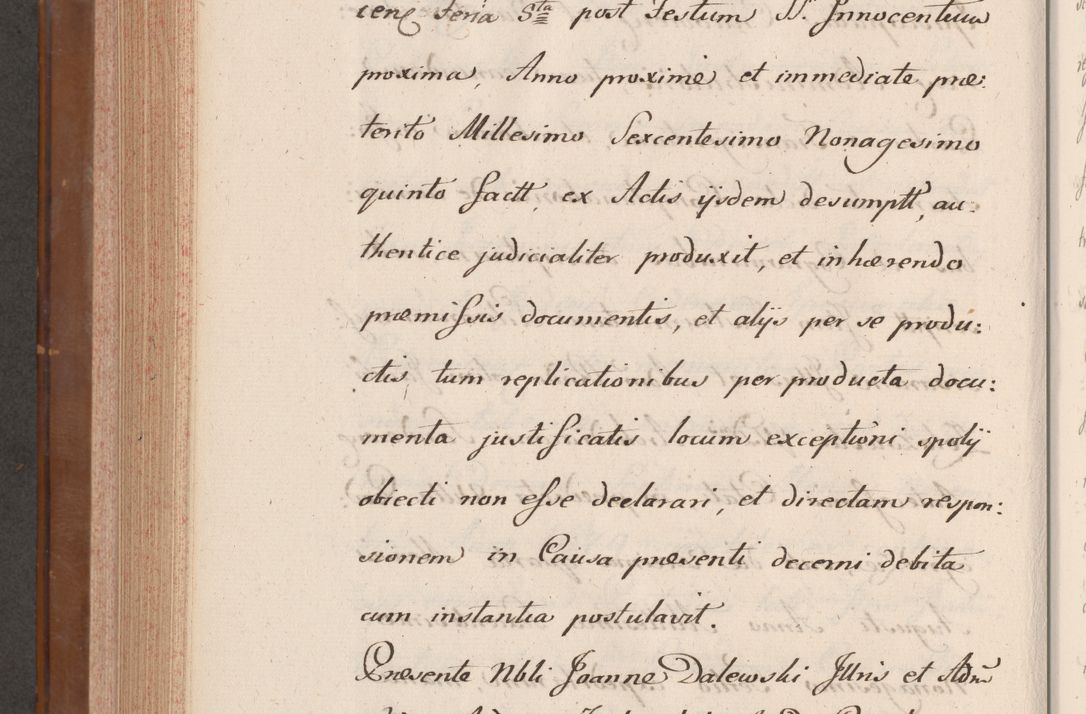 cenẹ Feria 5ta post Festum SS. Innocentum
proxima, Anno proxime et immediate præ:
terito Millesimo Sexcentesimo Nonagesimo
quinto factt, ex Actis ijsdem desumptt, au:
thentice judicialiter produxit, et inhærendo
præmissis documentis, et alijs per se produ:
ctis, tum replicationibus per producta docu:
menta justificatis locum exceptioni spolij
obiecti non esse declarari, et directam respon:
sionem in Causa præsenti decerni debita
cum instantia postulavit.
Præsente Nbli Joanne Dalewski Illris et Adm